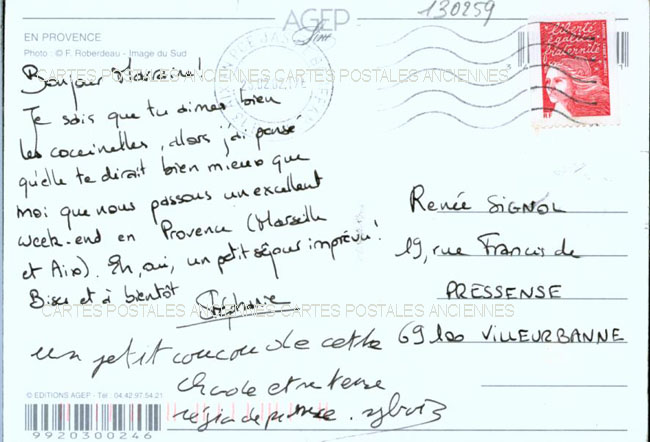 AGEP
130259
EN PROVENCE
Photo : © F. Roberdeau - Image du Sud
liberté
égalité
fraternité
CARTES POSTALES ANCIENNES CARTES POSTALES ANCIENNES
Bonjour
Je sais que tu aimes bien
les coccinelles, alors j'ai pensé
qu'elle te dirait bien mieux que
moi que nous passons un excellent
week-end en Provence (Marseille
et Aix). Eh, oui, un petit séjour imprévu!
Bises et à bientôt
Stéphanie
Renée SIGNOL
19, rue Francis de
PRESSENSE
69100 VILLEURBANNE
CARTES POSTALES ANCIENNES CARTES POSTALES ANCIENNES
un petit coucou de cette
chaude et intense
région de
© EDITIONS AGEP - Tél : 04.42.97.54.21
9920300246